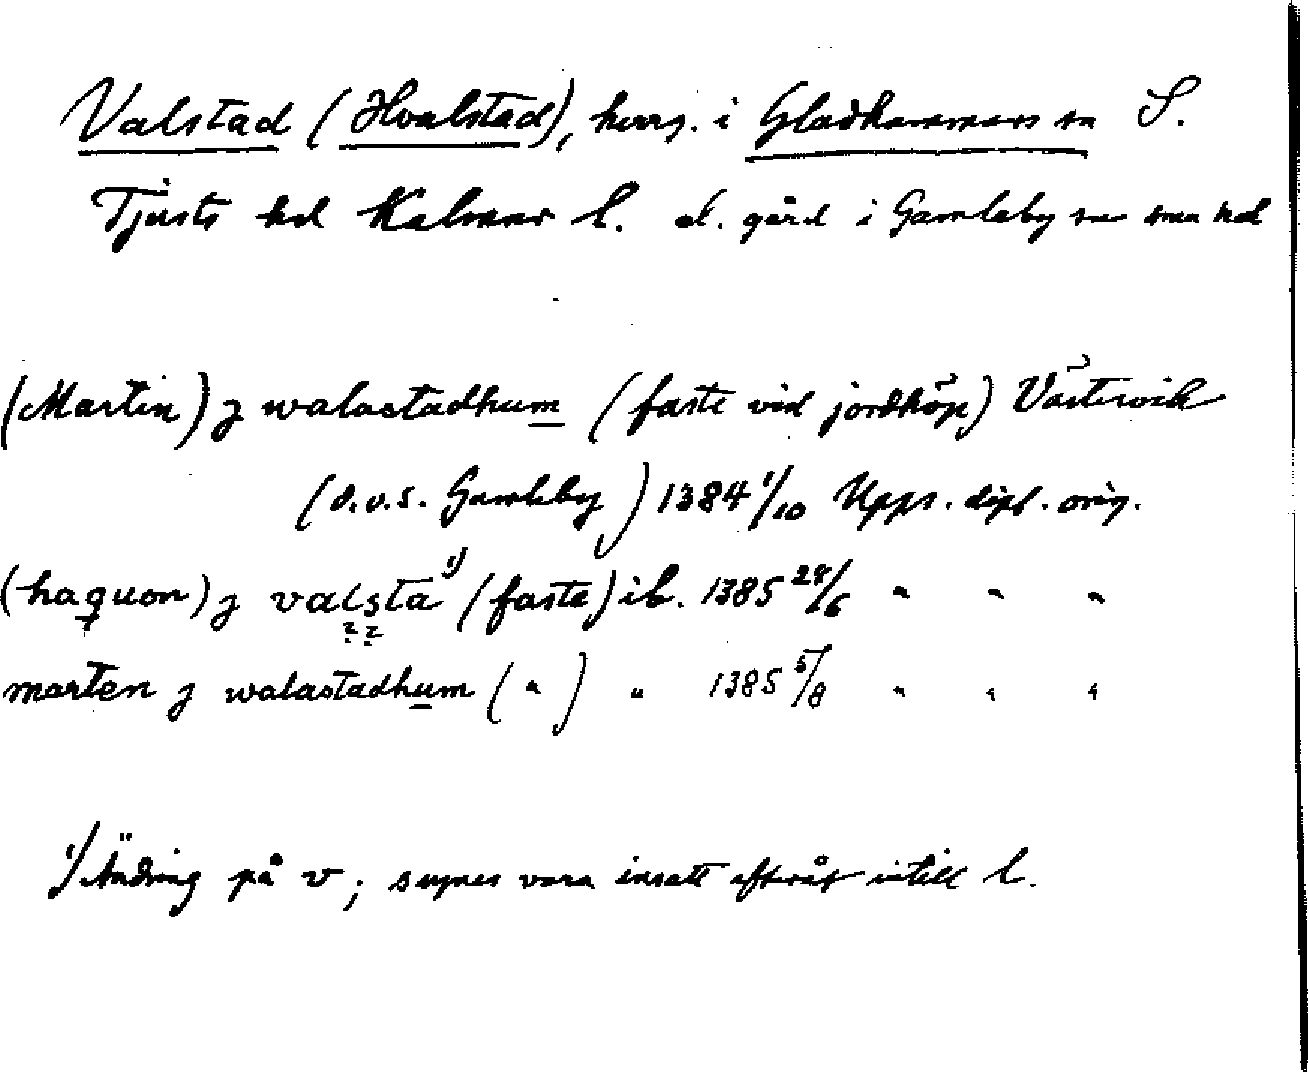 Valstad (Hvalstad), herrg. i Gladhammars sn S.
Tjusts hd Kalmar l. el. gård i Gamleby sn sma hd
(Martin) j walastadhum (faste vid jordköp) Västervik
(d.v.s. Gamleby) 1384 1/10 Upps. dipl. orig.
(haquon) j valsta 1) (faste) ib. 1385 24/6 " " "
marten j walastadhum ( " ) " 1385 5/8 " " "
1) Ändring på v; synes vara insatt efteråt intill l.